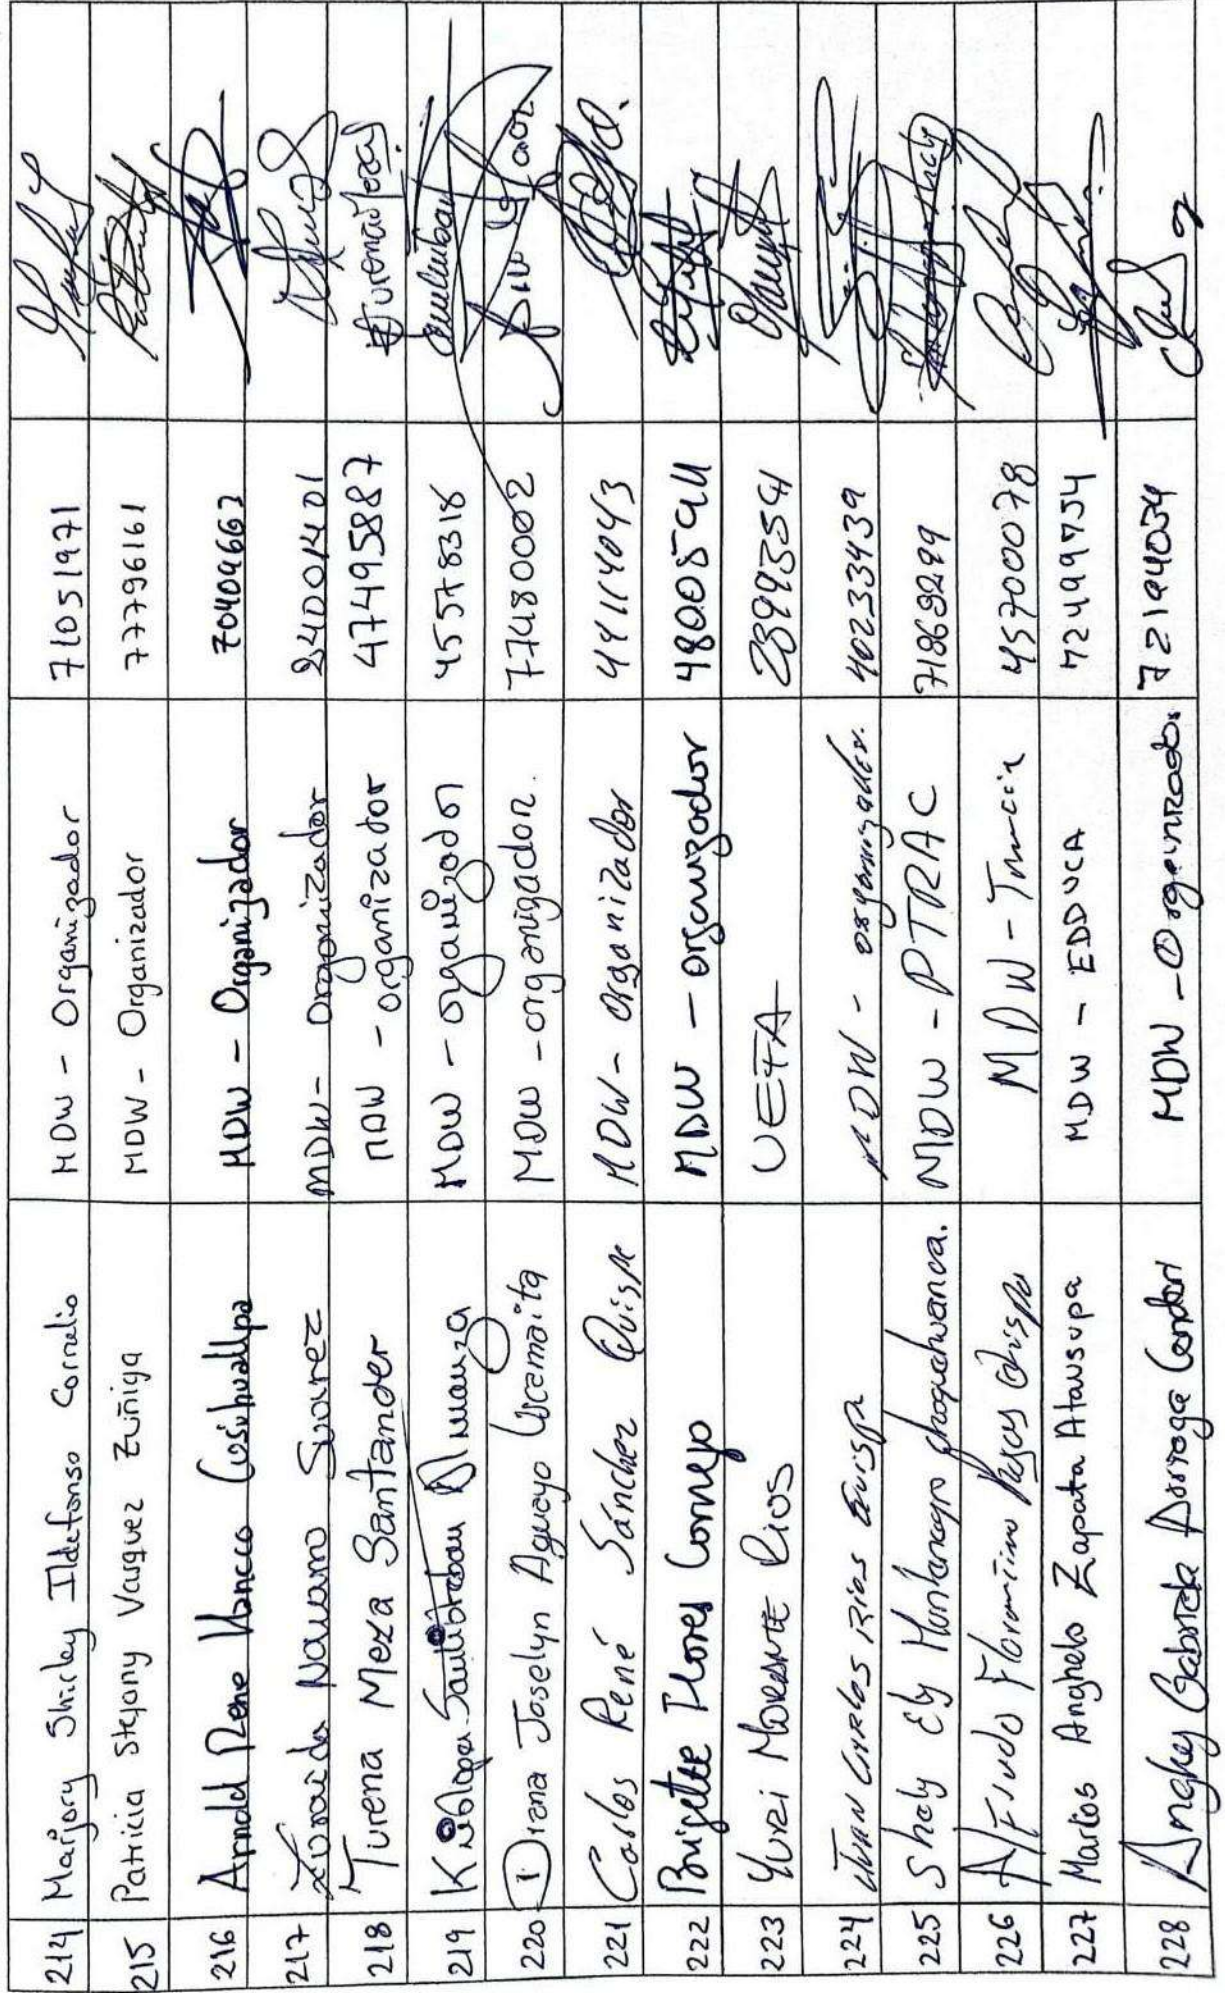 214 Marjory Shirley Ildefonso Cornelio MDW - Organizador 71051971
215 Patricia Stefony Vasquez Zuñiga MDW - Organizador 77796161
216 Arnold Rene Hancco Cusihuallpa MDW - Organizador 70404663
217 Zoraida Navarro Suarez MDW - Organizador 24001401
218 Turena Meza Santander MDW - organizador 47495887
219 MDW - organizador 45578318
220 Diana Joselyn Aguayo Uscamaita MDW - organizador. 77480002
221 Carlos René Sánchez Quispe MDW - Organizador 44114043
222 Brigette Flores Cornejo MDW - organizador 48005944
223 Yurzi Morante Rios UEFA 23993554
224 Juan Carlos Rios Quispe MDW - organizador. 40233439
225 Shaly Ely Huankayo Choquehuanca. MDW - PTRAC 71868299
226 MDW - 45700078
227 Marlos Anghelo Zapata Atausupa MDW - EDDUCA 72499754
228 Anghey Gabriela Arroyo Condori MDW - Organizador 72194034